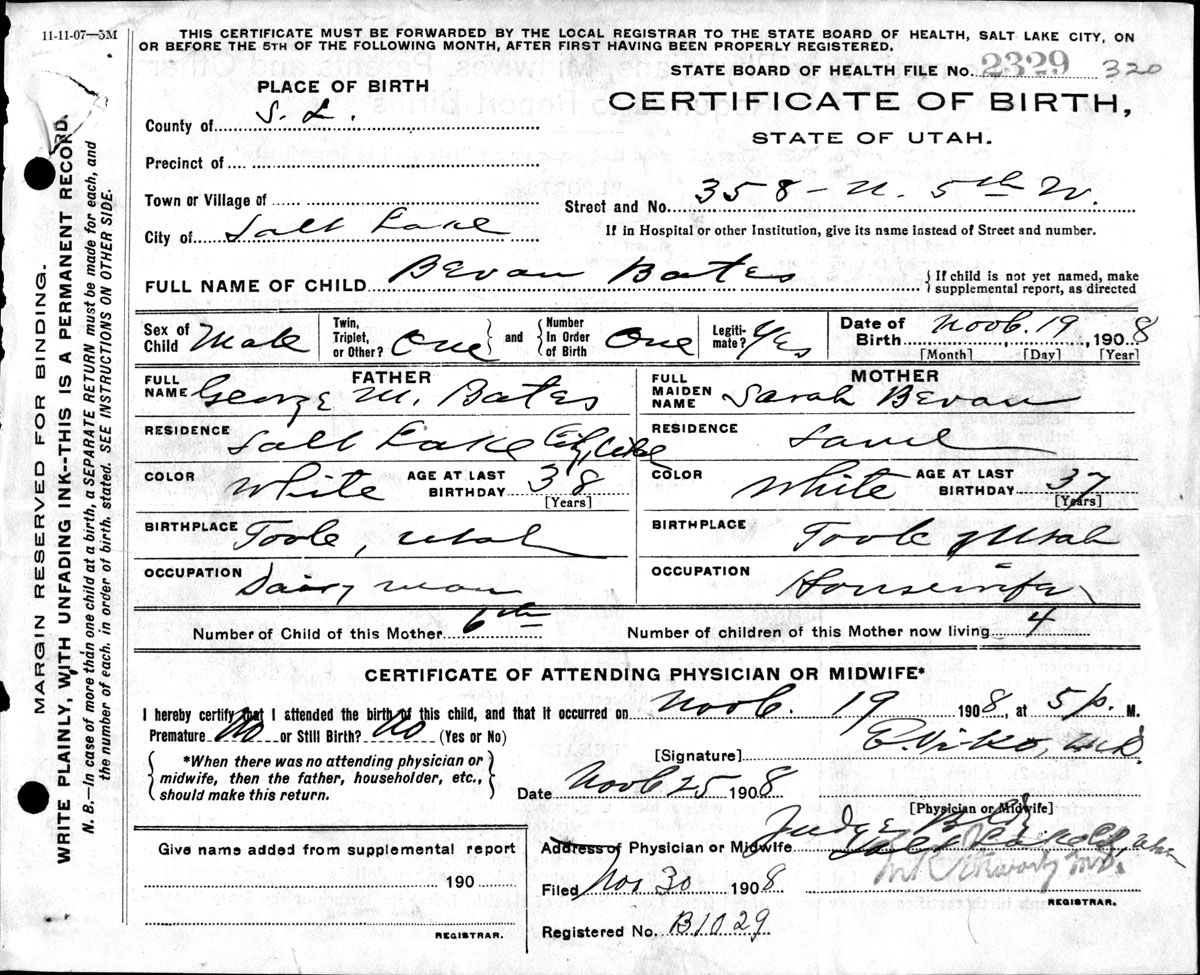 11-11-07—5M
THIS CERTIFICATE MUST BE FORWARDED BY THE LOCAL REGISTRAR TO THE STATE BOARD OF HEALTH, SALT LAKE CITY, ON
OR BEFORE THE 5TH OF THE FOLLOWING MONTH, AFTER FIRST HAVING BEEN PROPERLY REGISTERED.
STATE BOARD OF HEALTH FILE No. 2329 320
PLACE OF BIRTH
CERTIFICATE OF BIRTH,
STATE OF UTAH.
County of S. L.
Precinct of
Town or Village of
Street and No. 358 - N. 5th W.
City of Salt Lake
If in Hospital or other Institution, give its name instead of Street and number.
FULL NAME OF CHILD Bevan Bates
{If child is not yet named, make
supplemental report, as directed
Sex of Child Male
Twin, Triplet, or Other? One } and { Number In Order of Birth One
Legitimate? Yes
Date of Birth Novb. 19, 1908
[Month] [Day] [Year]
FATHER
FULL NAME George M. Bates
RESIDENCE Salt Lake City, Utah
COLOR White AGE AT LAST BIRTHDAY 38
[Years]
BIRTHPLACE Toole, Utah
OCCUPATION Dairy man
MOTHER
FULL MAIDEN NAME Sarah Bevan
RESIDENCE Same
COLOR White AGE AT LAST BIRTHDAY 37
[Years]
BIRTHPLACE Toole Utah
OCCUPATION Housewife
Number of Child of this Mother 6th
Number of children of this Mother now living 4
CERTIFICATE OF ATTENDING PHYSICIAN OR MIDWIFE*
I hereby certify that I attended the birth of this child, and that it occurred on Novb. 19 1908, at 5 p. M.
Premature No or Still Birth? No (Yes or No)
*When there was no attending physician or
midwife, then the father, householder, etc.,
should make this return.
[Signature]
Date Novb 25 1908
[Physician or Midwife]
Judge Bld
Address of Physician or Midwife Salt Lake City, Utah
Give name added from supplemental report
190
REGISTRAR.
Filed Nov 30 1908
REGISTRAR.
Registered No. B1029
MARGIN RESERVED FOR BINDING.
WRITE PLAINLY, WITH UNFADING INK--THIS IS A PERMANENT RECORD.
N. B.—In case of more than one child at a birth, a SEPARATE RETURN must be made for each, and
the number of each, in order of birth, stated. SEE INSTRUCTIONS ON OTHER SIDE.